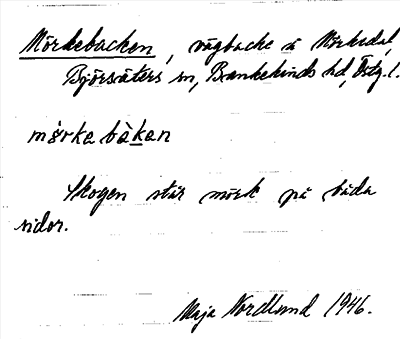 Mörkebacken, vägbacke å Mörkedal,
Björsäters sn, Bankekinds hd, Östg. l.
mǿrka bàkan
Skogen står mörk på båda
sidor.
Maja Nordlund 1946.